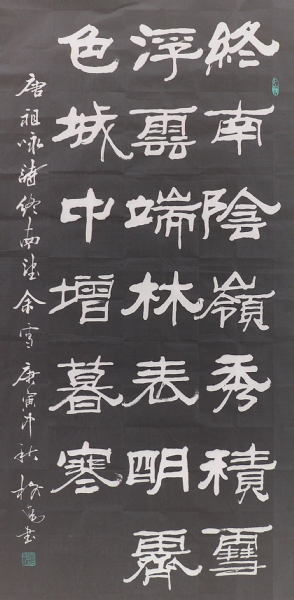 終南陰嶺秀積雪
浮雲端林表明霽
色城中增暮寒
唐祖咏詩終南望余雪庚寅年秋